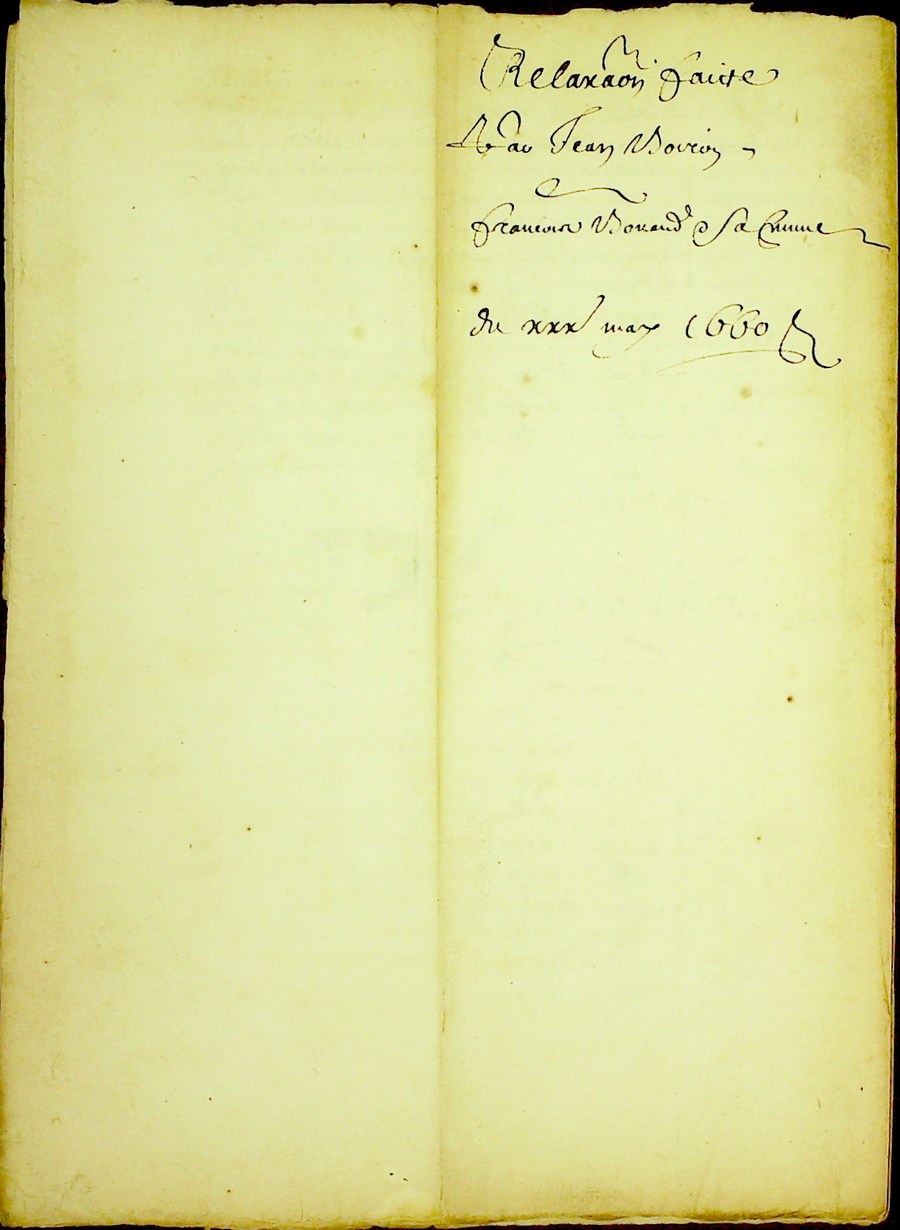 Relaxaõn faicte
Par Jean Boiron
francoise Bonand sa femme
du xxx may 1660